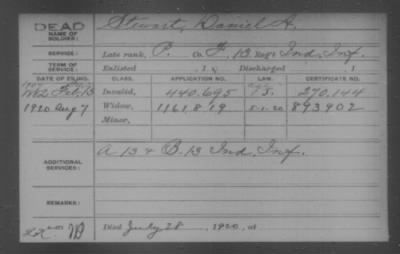 DEAD
NAME OF SOLDIER: Stewart, Daniel A.
SERVICE: Late rank, P. Co. F, 13 Reg't Ind. Inf.
TERM OF SERVICE: Enlisted 1 , Discharged 1
DATE OF FILING. CLASS. APPLICATION NO. LAW. CERTIFICATE NO.
Feb 13 Invalid, 440.695 270.144
1920 Aug 7 Widow, 1161819 5-1-20 893902
Minor,
ADDITIONAL SERVICES: A 13 & B. 13 Ind. Inf.
REMARKS:
Died July 28, 1920, at